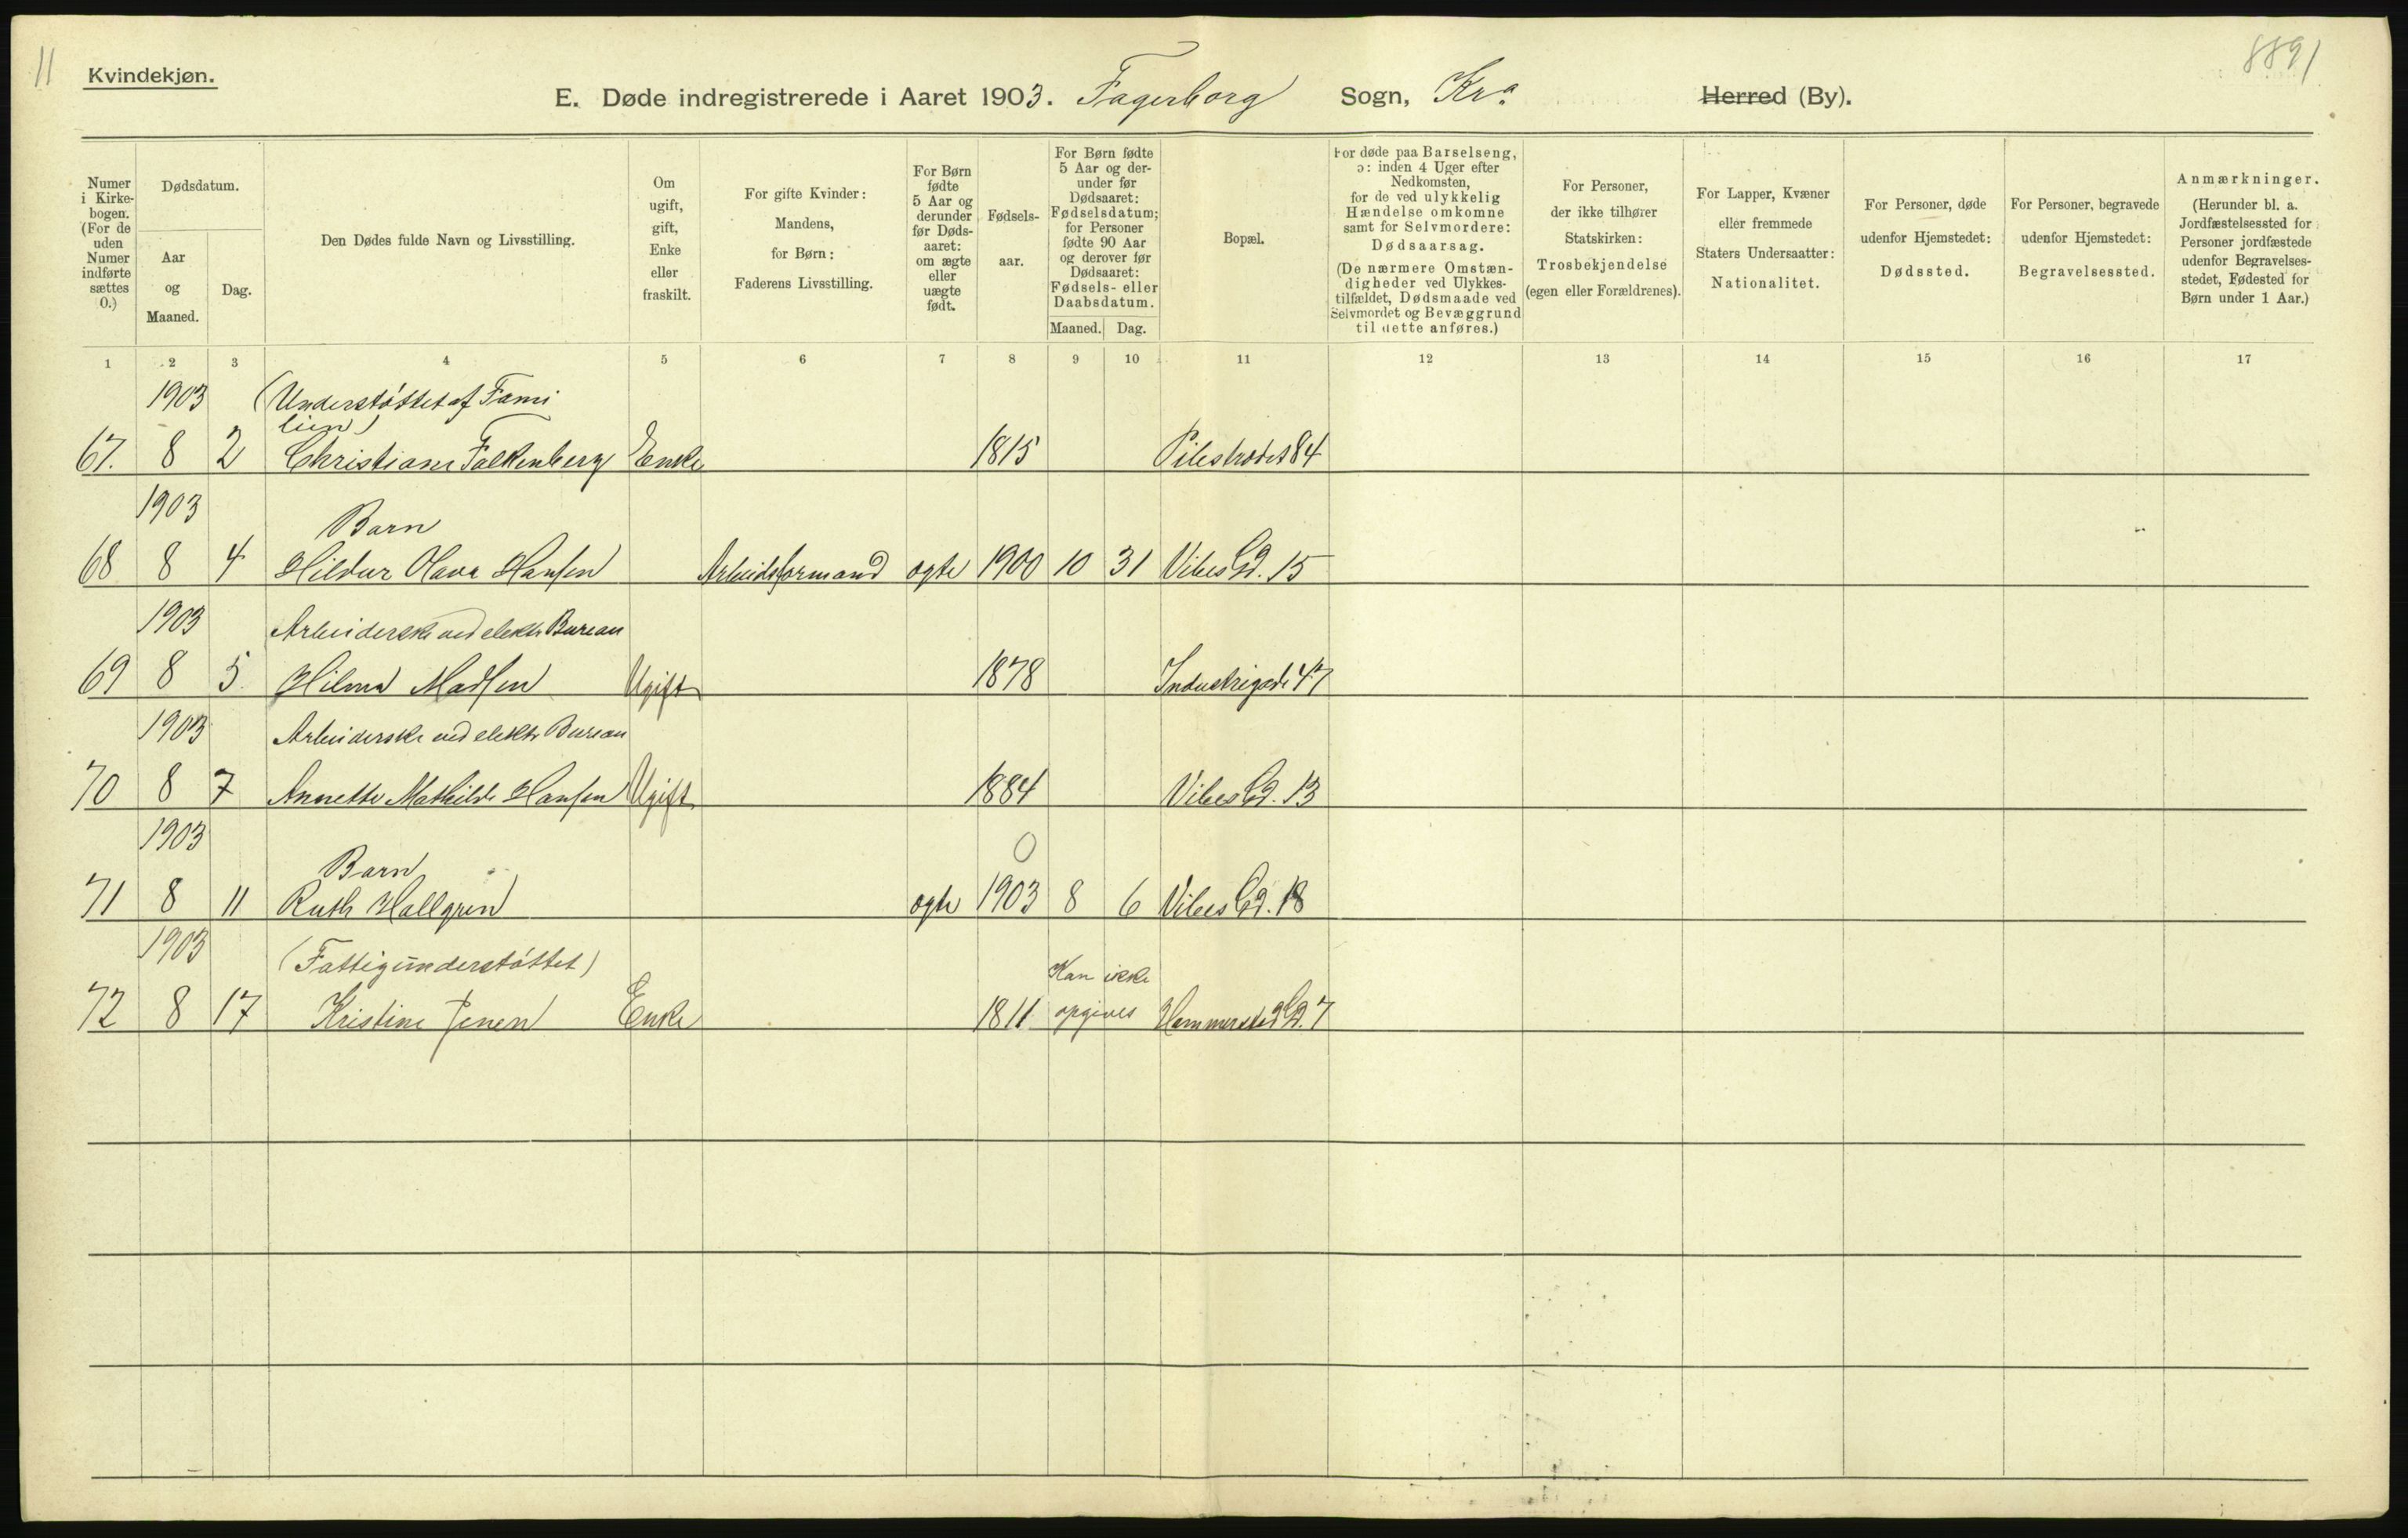 11
8891
Kvindekjøn.
E. Døde indregistrerede i Aaret 1903. Fagerborg Sogn, Kra Herred (By).
Numer i Kirke-bogen. (For de uden Numer indførte sættes 0.)
Dødsdatum.
Aar og Maaned.
Dag.
Den Dødes fulde Navn og Livsstilling.
Om ugift, gift, Enke eller fraskilt.
For gifte Kvinder: Mandens, for Børn: Faderens Livsstilling.
For Børn fødte 5 Aar og derunder før Døds-aaret: om ægte eller uægte født.
Fødsels-aar.
For Børn fødte 5 Aar og der-under før Dødsaaret: Fødselsdatum; for Personer fødte 90 Aar og derover før Dødsaaret: Fødsels- eller Daabsdatum.
Maaned. Dag.
Bopæl.
For døde paa Barselseng, ɔ: inden 4 Uger efter Nedkomsten, for de ved ulykkelig Hændelse omkomne samt for Selvmordere: Dødsaarsag. (De nærmere Omstæn-digheder ved Ulykkes-tilfældet, Dødsmaade ved Selvmordet og Bevæggrund til dette anføres.)
For Personer, der ikke tilhører Statskirken: Trosbekjendelse (egen eller Forældrenes).
For Lapper, Kvæner eller fremmede Staters Undersaatter: Nationalitet.
For Personer, døde udenfor Hjemstedet: Dødssted.
For Personer, begravede udenfor Hjemstedet: Begravelsessted.
Anmærkninger. (Herunder bl. a. Jordfæstelsessted for Personer jordfæstede udenfor Begravelses-stedet, Fødested for Børn under 1 Aar.)
1 2 3 4 5 6 7 8 9 10 11 12 13 14 15 16 17
1903 (Understøttet af Fami
lien)
67. 8 2 Christiane Falkenberg Enke 1815 Pilestrædet 84
1903 Barn
68 8 4 Hildur Olava Hansen Arbeidsformand ægte 1900 10 31 Vibes Gd. 15
1903 Arbeiderske ved elektr Bureau
69 8 5. Hilma Madsen Ugift 1878 Industrigade 47
1903 Arbeiderske ved elektr Bureau
70 8 7 Annette Mathilde Hansen Ugift 1884 Vibes Gd. 13
1903 Barn 0
71 8 11 Ruth Hallgren ægte 1903 8 6 Vibes Gd. 18
1903 (Fattigunderstøttet) Kan ikke
72 8 17 Kristine Jenen Enke 1811 opgives Hammerstad Gd. 7